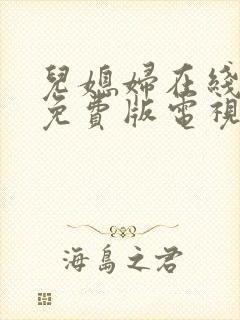 兒媳婦在綫
免費版電視
海島之君